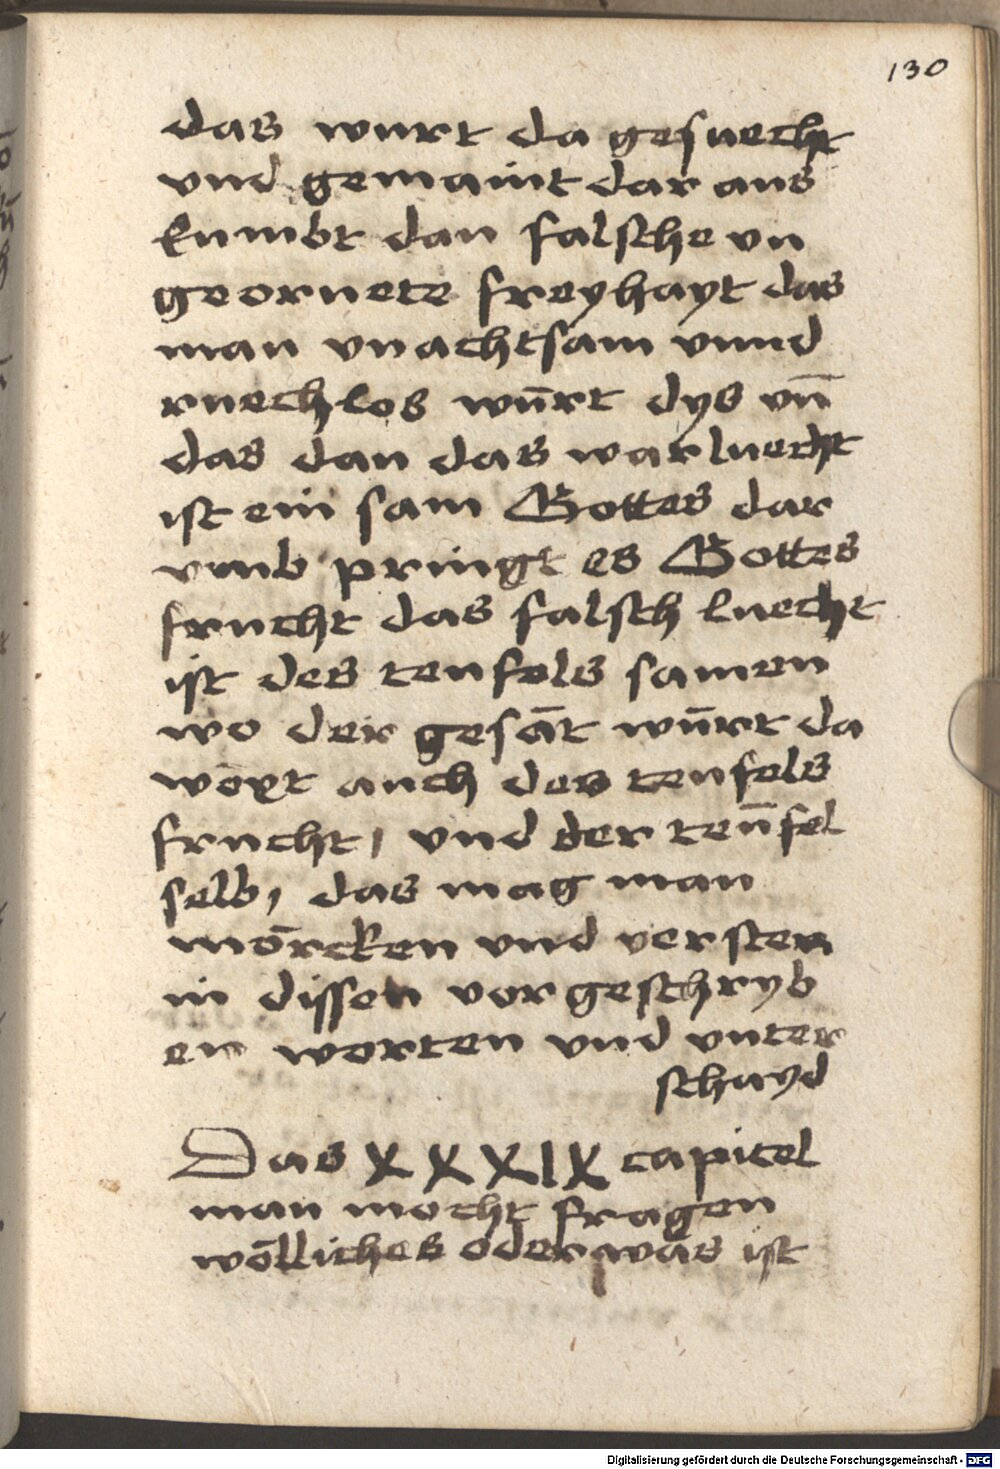 130
das wurt da gesuecht
vnd gemaint dar aus
kumbt dan falsche vn
geornete freyhayt das
man vnachtsam vnnd
ruechlos wūrt dys vn̄
das dan das war luecht
ist ein sam Gottes dar
vmb pringt es Gottes
frucht das falsch luecht
ist des teufels samen
wo der gesāt wūrt da
wōxt auch des teufels
frucht, vnd der teūfel
selb, das mag man
mōrcken vnd versten
in dissen vorgeschryb
en worten vnd vnter
schayd
Das XXXIX capitel
man mocht fragen
wōlliches oder was ist
Digitalisierung gefördert durch die Deutsche Forschungsgemeinschaft - DFG